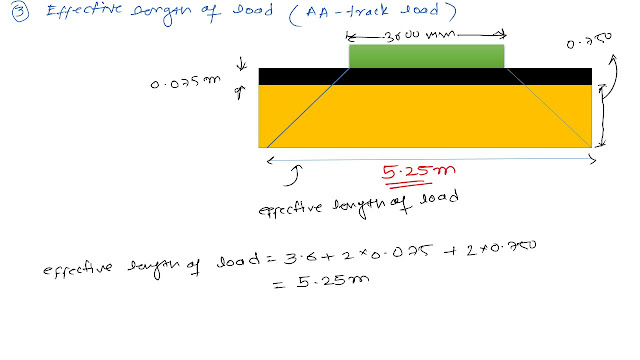 ③ Effective length of load ( AA - track load )
3600 mm
0.750
0.075 m
5.25m
effective length of load
effective length of load = 3.6 + 2 × 0.075 + 2 × 0.750
= 5.25m